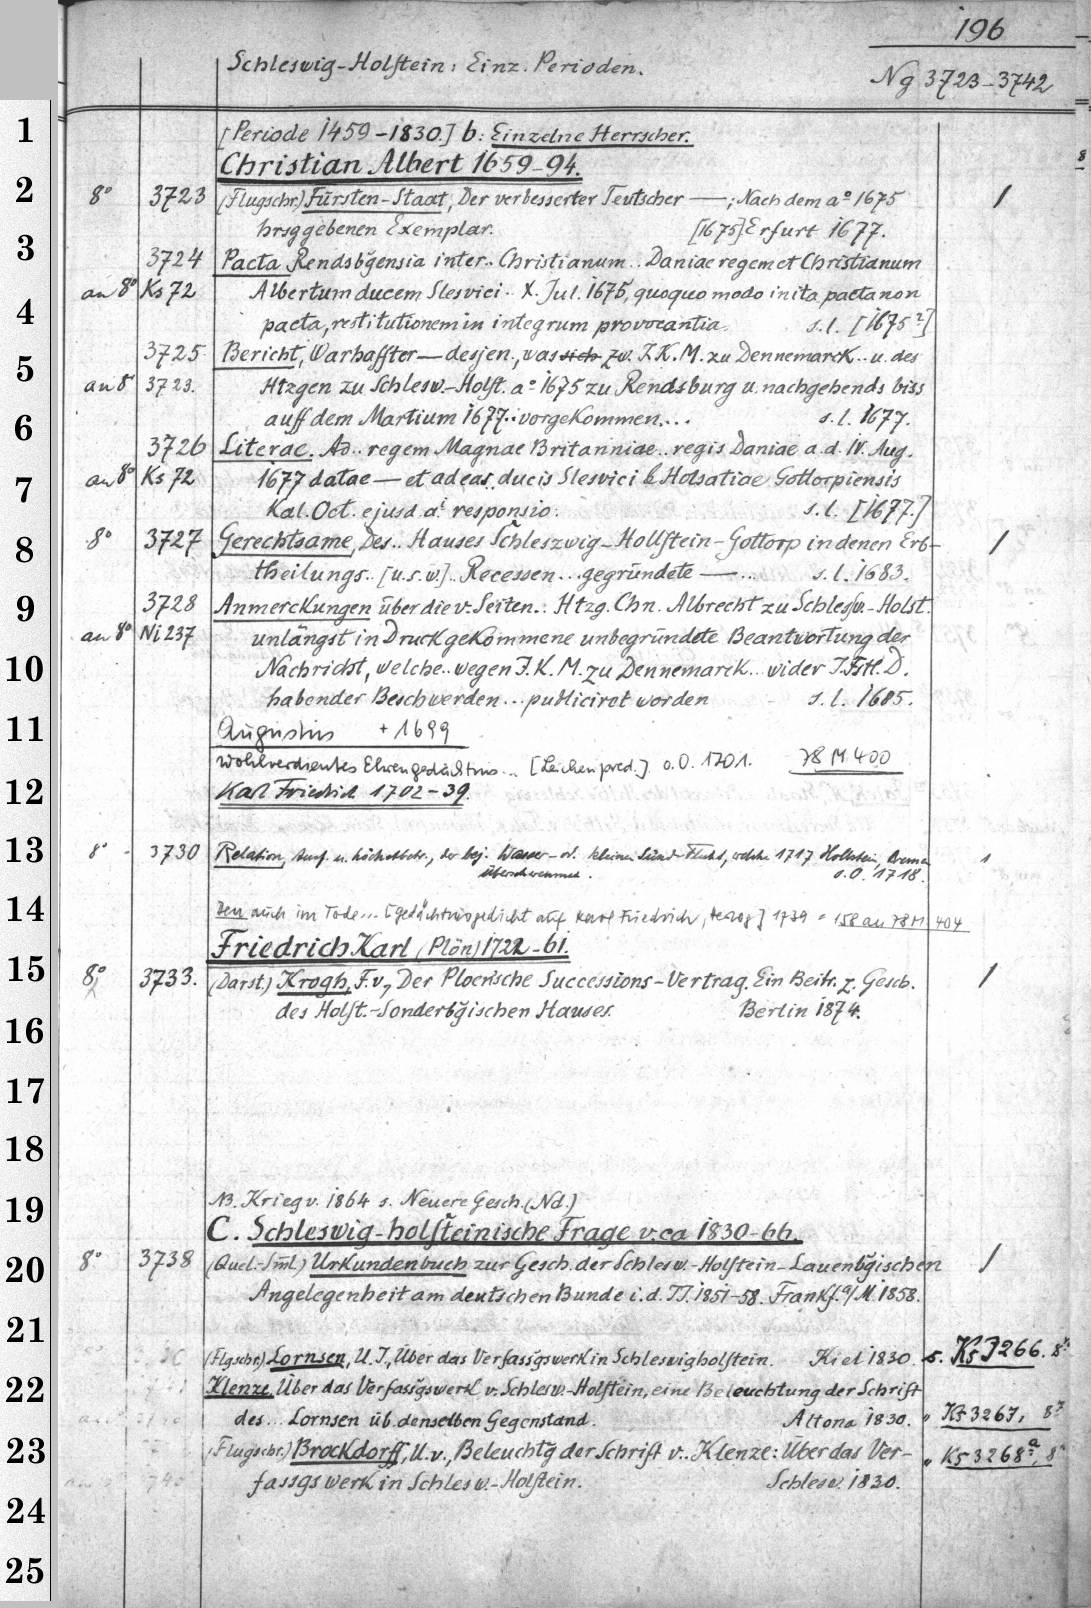 196
Schleswig-Holstein: Einz. Perioden.
Ng 3723-3742
1 [Periode 1459-1830.] b: Einzelne Herrscher.
Christian Albert 1659-94.
2 8° 3723 (Flugschr.) Fürsten-Staat, Der verbesserter Teutscher —; Nach dem a° 1675 1
hrsggebenen Exemplar. [1675] Erfurt 1677.
3 3724 Pacta Rendsbgensia inter.. Christianum.. Daniae regem et Christianum
an 8° Ks 72 Albertum ducem Slesvici.. X. Jul. 1675, quoquo modo inita pacta non
4 pacta, restitutionem in integrum provocantia. s.l. [1675?]
5 3725 Bericht, Warhaffter— desjen., was sich zw. I.K.M. zu Dennemarck.. u. des
an 8° 3723. Htzgen zu Schlesw.-Holst. a° 1675 zu Rendsburg u. nachgehends biss
6 auff dem Martium 1677.. vorgekommen... s.l. 1677.
3726 Literae. Ad.. regem Magnae Britanniae.. regis Daniae a.d. IV. Aug.
7 an 8° Ks 72 1677 datae— et ad eas.. ducis Slesvici & Holsatiae Gottorpiensis
Kal. Oct. ejusd. a.i responsio. s.l. [1677.]
8 8° 3727 Gerechtsame, Des.. Hauses Schleszwig-Hollstein-Gottorp in denen Erb- 1
theilungs.. [u.s.w.].. Recessen... gegründete —.. s.l. 1683.
9 3728 Anmerckungen über die v. Seiten.. Htzg. Chn. Albrecht zu Schlesw.-Holst.
an 8° Ni 237 unlängst in Druck gekommene unbegründete Beantwortung der
10 Nachricht, welche.. wegen I.K.M. zu Dennemarck... wider I. Fstl. D.
habender Beschwerden... publiciret worden s.l. 1685.
11 Augustus + 1699
Wohlverdientes Ehrengedächtnis... [Leichenpred.] o.O. 1701. 78 M 400
12 Karl Friedrich 1702-39.
13 8° 3730 Relation, Ausf. u. höchstbetr., der bes. Wasser- od. kleinen Sünd-Fluht, welche 1717 Hollstein, Bremen 1
überschwemmet. s.O. 1718.
14 Den auch im Tode... [Gedächtnisgedicht auf Karl Friedrich, Herzog] 1739 = 158 an 78 M 404
Friedrich Karl (Plön) 1722-61.
15 8° 3733. (Darst.) Krogh, F.v., Der Ploensche Successions-Vertrag. Ein Beitr. z. Gesch. 1
des Holst.-Sonderbgischen Hauses. Berlin 1874.
16
17
18
19 NB. Krieg v. 1864 s. Neuere Gesch. (Nd.)
C. Schleswig-holsteinische Frage v. ca 1830-66.
20 8° 3738 (Quel.-Sml.) Urkundenbuch zur Gesch. der Schlesw.-Holstein-Lauenbgischen 1
Angelegenheit am deutschen Bunde i.d. JJ. 1851-58. Frankf. a/M. 1858.
21
(Flgschr.) Lornsen, U.J., Über das Verfassgswerk in Schleswigholstein. Kiel 1830. s. Ks 3266. 8°
22 Klenze, Über das Verfassgswerk v. Schlesw.-Holstein, eine Beleuchtung der Schrift
des.. Lornsen üb. denselben Gegenstand. Altona 1830. " Ks 3267, 8°
23 (Flugschr.) Brockdorff, U.v., Beleuchtg der Schrift v.. Klenze: Über das Ver- " Ks 3268a, 8°
fassgswerk in Schlesw.-Holstein. Schlesw. 1830.
24
25